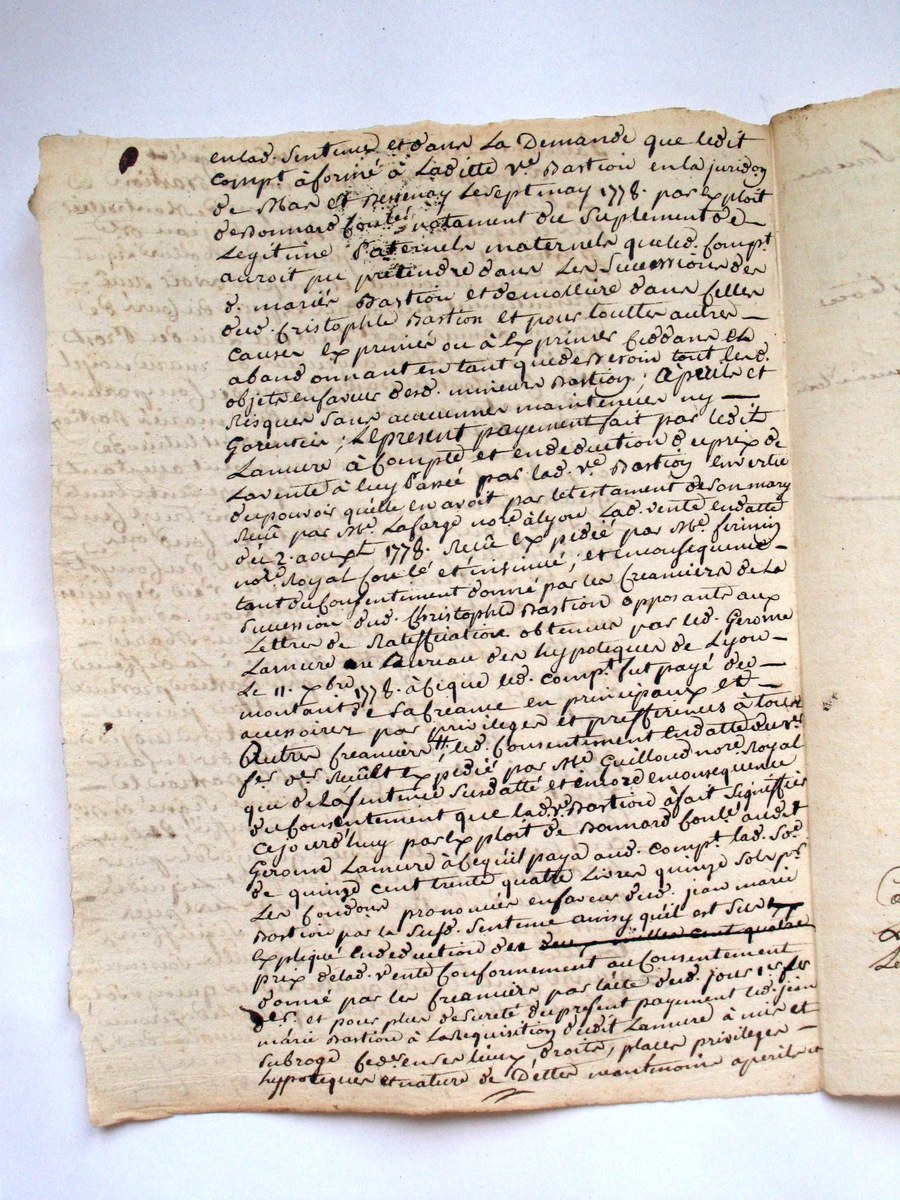 enlad. Sentence et dans La Demande que ledit
Comp.t à formé à Laditte v.e Bastion en la juridon
de Mars et Bessenay Le Sept may 1778. par Exploit
de Bonnard Controlé notament du Suplement de
Legitime Paternels maternels que led. Comp.t
auroit pu prétendre dans Les Successions des
d. mariés Bastion et demollière dans Celles
dud. Cristophle Bastion et pour touttes autres
Causes Exprimés ou à Exprimer Ceddans Et
abandonnant en tant que de Besoin tout lesd.
objets en faveur desd. mineurs Bastion; à perils et
Risques Sans aucunnes maintenües ny
Garentie; Le present payement fait par ledit
Lamure à Compte et en deduction du prix de
La vente à luy Passée par lad. v.e Bastion En vertu
du pouvoir qu'elle en avoit par le testament de Son mary
Reçû par M.e Lafarge no.re à Lyon Lad. vente En datte
du 2. aoust 1778. Reçû Expedié par M.e firmin
no.re Royal Con lé et insinué; et en consequence
tant du Consentement donné par les Creanciers de La
Succession dud. Christophle Bastion opposants aux
Lettres de Ratiffication obtenues par led. Gerome
Lamure au Bureau des hypoteques de Lyon
Le 11. Xbre 1778. à Ce que led. Comp.t fut payé du
montant de Sa Creance en principaux et
accessoires par privileges et prefferences à tous
autres Creanciers, led. Consentement En datte du
que de la Sentence Susdatté et encore en consequence
du Consentement que lad. v.e Bastion à fait Signiffier
Cejourd'huy par Exploit de Bonnard Conlé audit
Gerome Lamure à Ce qu'il paya aud. Comp.t lad. So.e
de quinze Cent trente quatre Livres quinze Sols p.r
Les Condons prononcées en faveur dud. jean marie
Bastion par la Susd. Sentence ainsy qu'il est Sus
Expliqué En deduction des deux milles Cent quatre
prix de lad. vente Conformement au Consentement
donné par les Creanciers par l'acte dud. jour
et pour plus de Sureté du present payement led. jean
marie Bastion à La Requisition dudit Lamure à mis et
Subrogé Ced. en Ses lieux, droits, places privileges
hypoteques et nature de Dettes neantmoins à perils et